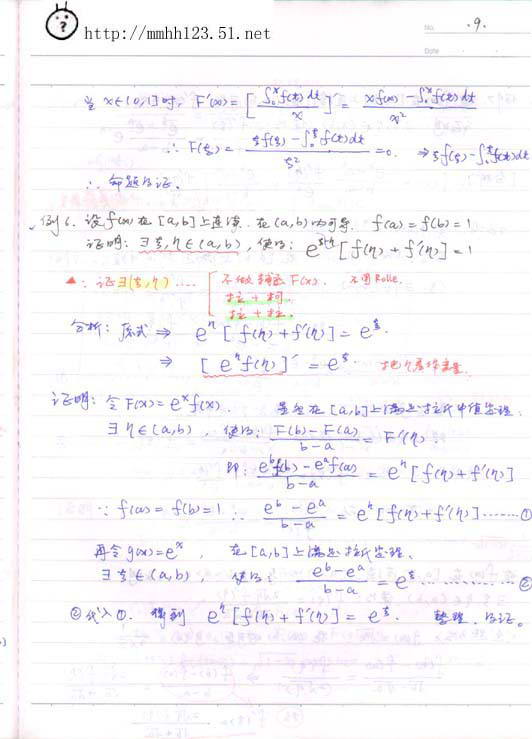 http://mmhh123.51.net
No. ·9.
Date
当 x∈(0,1]时, F'(x) = [∫₀ˣf(t)dt / x]' = (xf(x) - ∫₀ˣf(t)dt) / x²
∴ F'(ξ) = (ξf(ξ) - ∫₀^ξ f(t)dt) / ξ² = 0. ⇒ ξf(ξ) - ∫₀^ξ f(t)dt
∴ 命题得证.
例6. 设f(x)在[a,b]上连续. 在(a,b)内可导. f(a) = f(b) = 1
证明: ∃ξ,η∈(a,b), 使得: e^{ξ-η}[f(η) + f'(η)] = 1
▲: 证∃(ξ,η)…… [ 不做辅函F(x). 不用Rolle.
拉+柯.
拉+拉.
分析: 原式 ⇒ e^η[f(η) + f'(η)] = e^ξ.
⇒ [e^η f(η)]' = e^ξ. 把η看作变量.
证明: 令F(x) = e^x f(x). 显然在[a,b]上满足拉氏中值定理.
∃η∈(a,b), 使得: (F(b) - F(a)) / (b-a) = F'(η)
即: (e^b f(b) - e^a f(a)) / (b-a) = e^η[f(η) + f'(η)]
∵ f(a) = f(b) = 1 ∴ (e^b - e^a) / (b-a) = e^η[f(η) + f'(η)]……①
再令g(x) = e^x, 在[a,b]上满足拉氏定理.
∃ξ∈(a,b), 使得: (e^b - e^a) / (b-a) = e^ξ……②
②代入①. 得到 e^η[f(η) + f'(η)] = e^ξ. 整理. 得证.